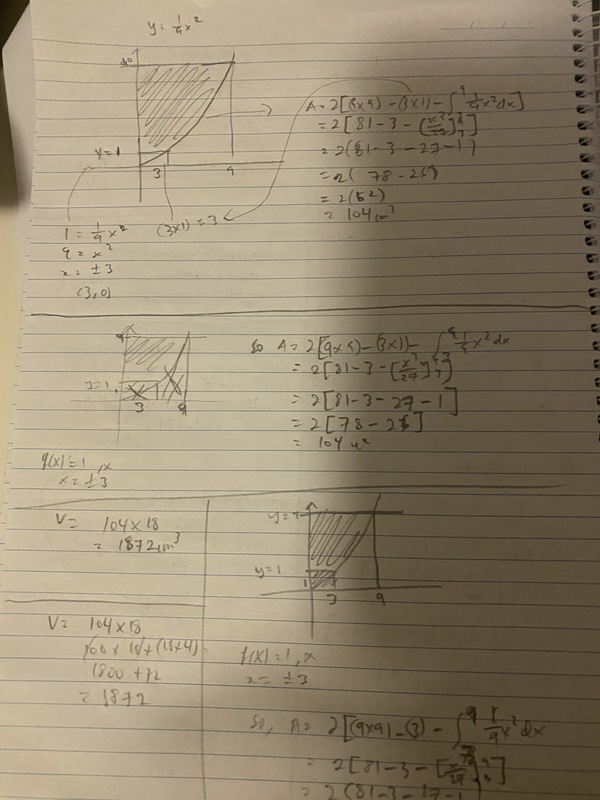 y = 1/9 x²
y=1
3
9
A = 2[(9×9) - (3×1) - ∫₃⁹ 1/9 x² dx]
= 2[81 - 3 - [x³/27]₃⁹]
= 2(81 - 3 - 27 - 1)
= 2(78 - 26)
= 2(52)
= 104 cm²
1 = 1/9 x²
9 = x²
x = ±3
(3,0)
(3×1) = 3
9
y=1
3
9
So A = 2[(9×9) - (3×1) - ∫₃⁹ 1/9 x² dx
= 2[81 - 3 - [x³/27]₃⁹]
= 2[81 - 3 - 27 - 1]
= 2[78 - 26]
= 104 u²
f(x) = 1, x
x = ±3
V = 104 × 18
= 1872 cm³
y=9
y=1
1
3
9
V = 104 × 18
100 × 18 + (18×4)
1800 + 72
= 1872
f(x) = 1, x
x = ±3
So, A = 2[(9×9) - (3) - ∫₃⁹ 1/9 x² dx
= 2[81 - 3 - [x³/27]₃⁹]
= 2(81 - 3 - 27 - 1)